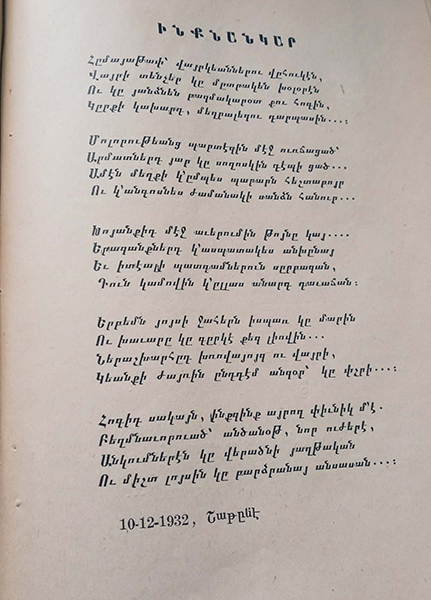 ԻՆՔՆԱՆԿԱՐ
Հըմայաթափ՝ վայրկեաններու վըհուկէն,
Վայրի տենչեր կը մտրակեն խօլօրէն
Ու կը յանձնեն բազմակարօտ քու հոգին,
Կըրքի կախարդ, մեղրալեզու դարպասին...։
Մոլորութեանց պարտէզին մէջ ուռճացած՝
Արմատներդ յար կը սողոսկին դէպի ցած...
Ամէն մեղքի կ՚ըմպես պարարն հեշտաբոյր
Ու կ՚անգոսնես ժամանակի սանձն համուր...
Խոյանքիդ մէջ աւերումին թոյնը կայ....
Երազանքներդ կ՚ասպատակես անխընայ
Եւ իտէալի պատգամներուն սըրբազան,
Դուն կամովին կ՚ըլլաս անարգ դաւաճան։
Երբեմն յոյսի ջահերն իսպառ կը մարին
Ու խաւարը կը գըրկէ քեզ լիովին...
Ներաշխարհըդ խռովայոյզ ու վայրի,
Կեանքի ժայռին ընդդէմ անզօր՝ կը փշրի...։
Հոգիդ սակայն, ինքզինք այրող փիւնիկ մ՚է.
Բեղմնաւորուած՝ անծանօթ, նոր ուժերէ,
Անկումներէն կը վերածնի յաղթական
Ու միշտ լոյսին կը բարձրանայ անսասան...։
10-12-1932, Շաթընէ